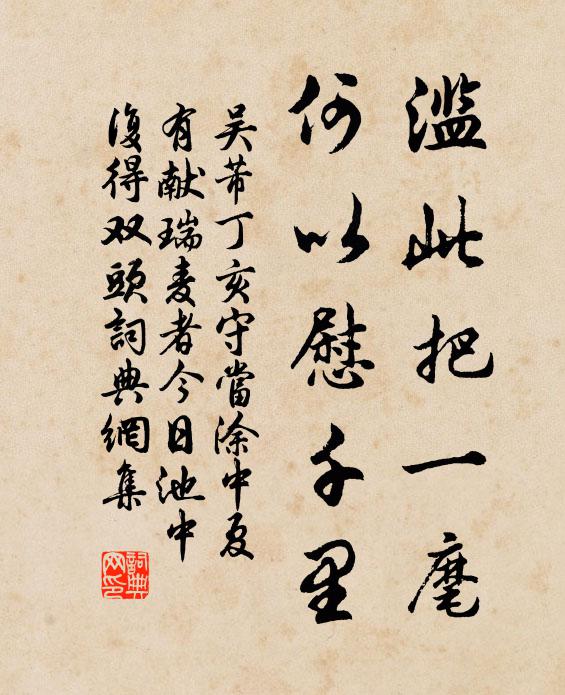 濫此把一麾
何以慰千里
吴芾丁亥守當涂中夏
有献瑞麦者今日池中
復得双頭詞典網集
詞典网印